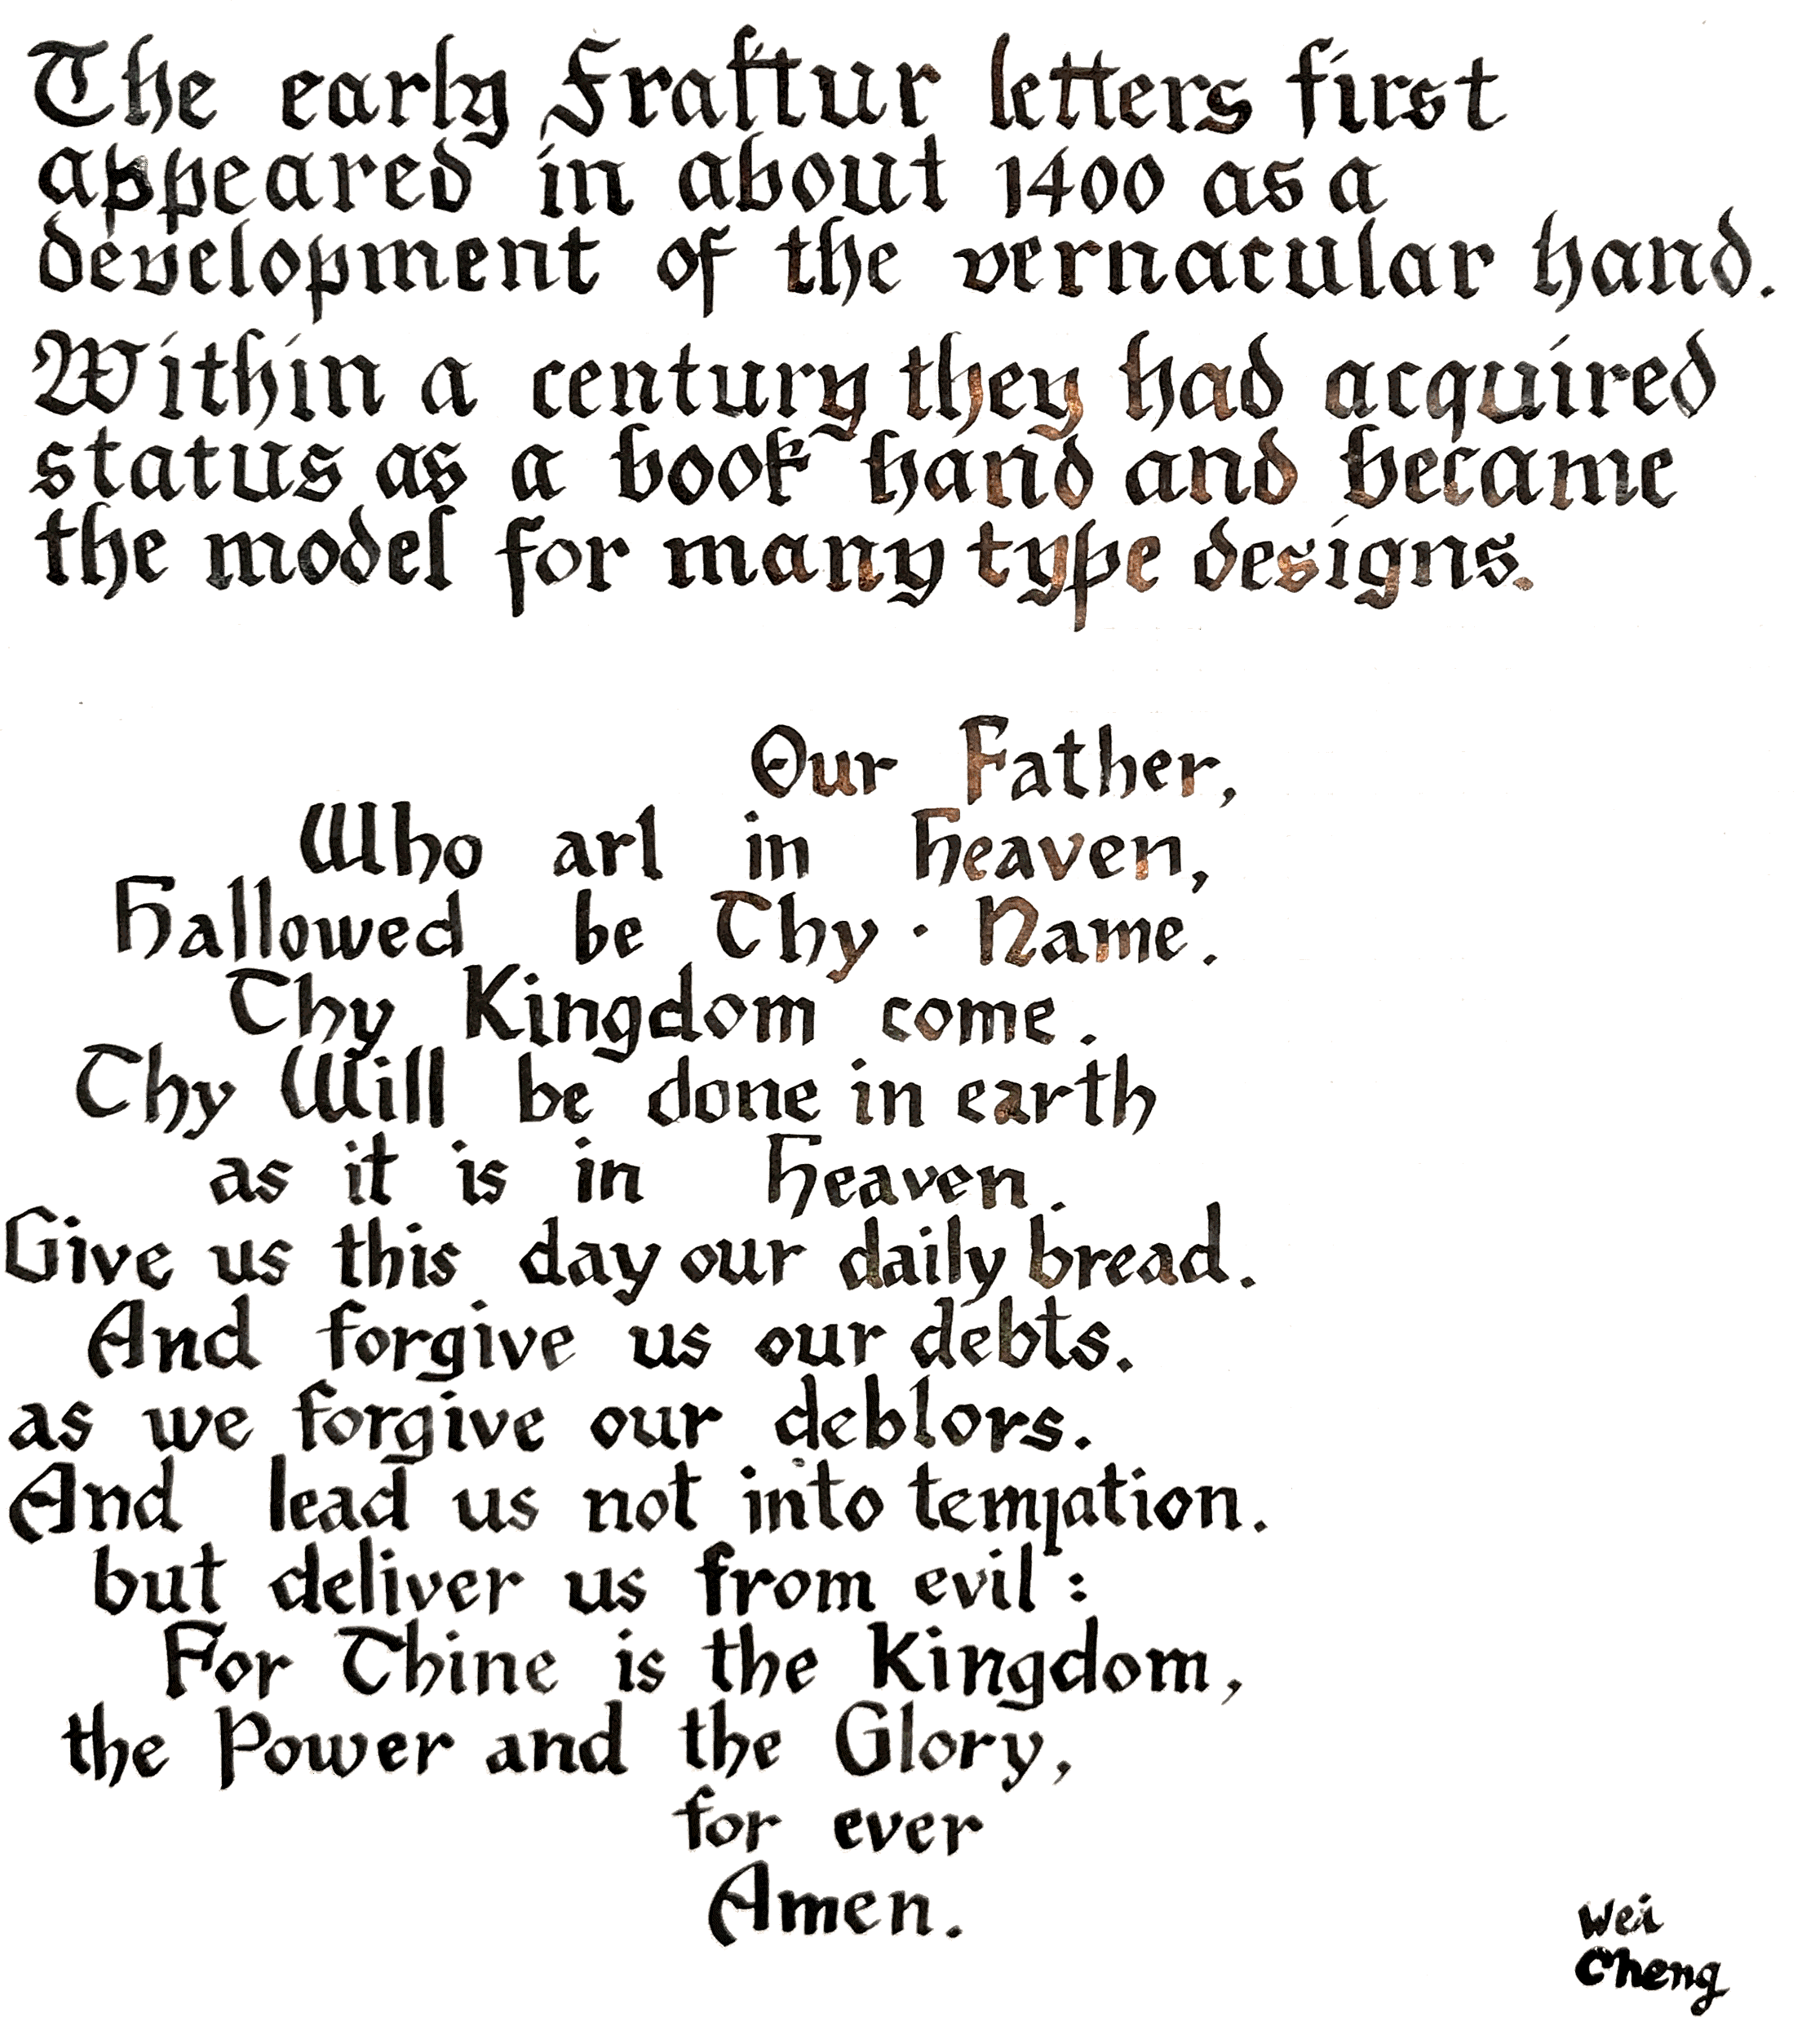 The early Fraktur letters first
appeared in about 1400 as a
development of the vernacular hand.
Within a century they had acquired
status as a book hand and became
the model for many type designs.
Our Father,
Who arl in heaven,
hallowed be Thy · Name.
Thy Kingdom come.
Thy Will be done in earth
as it is in heaven.
Give us this day our daily bread.
And forgive us our debts.
as we forgive our deblors.
And lead us not into temptation.
but deliver us from evil:
For Thine is the Kingdom,
the Power and the Glory,
for ever
Amen.
Wei
Cheng